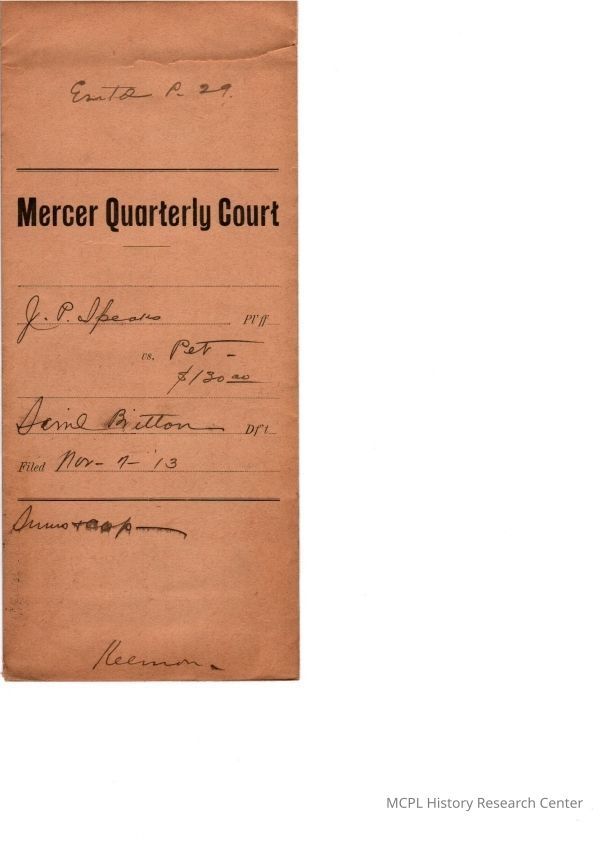 Entd P. 29.
Mercer Quarterly Court
J. P. Speaks Pl'ff
vs. Pet -
$130 00
Britton Df't
Filed Nov - 7 - '13
Sums + cop
Keenon.
MCPL History Research Center